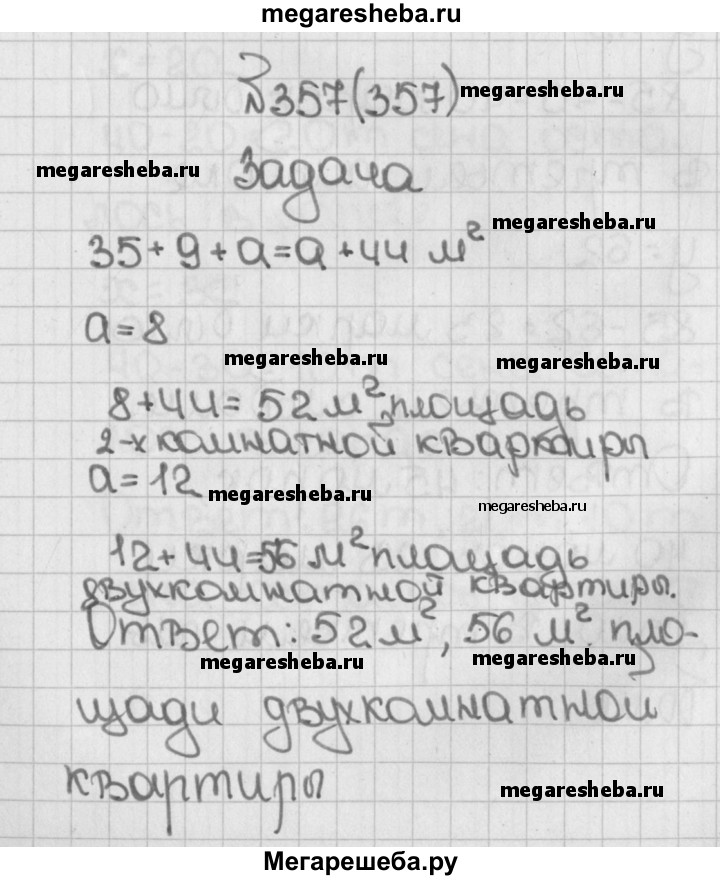 megaresheba.ru
№357(357) megaresheba.ru
megaresheba.ru Задача
megaresheba.ru
35+9+a=a+44 м²
a=8
megaresheba.ru megaresheba.ru
8+44=52м² площадь
2-х комнатной квартиры
a=12 megaresheba.ru megaresheba.ru
12+44=56 м² площадь
двухкомнатной квартиры.
Ответ: 52м², 56 м² пло-
megaresheba.ru megaresheba.ru
щади двухкомнатной
квартиры megaresheba.ru
Мегарешеба.ру